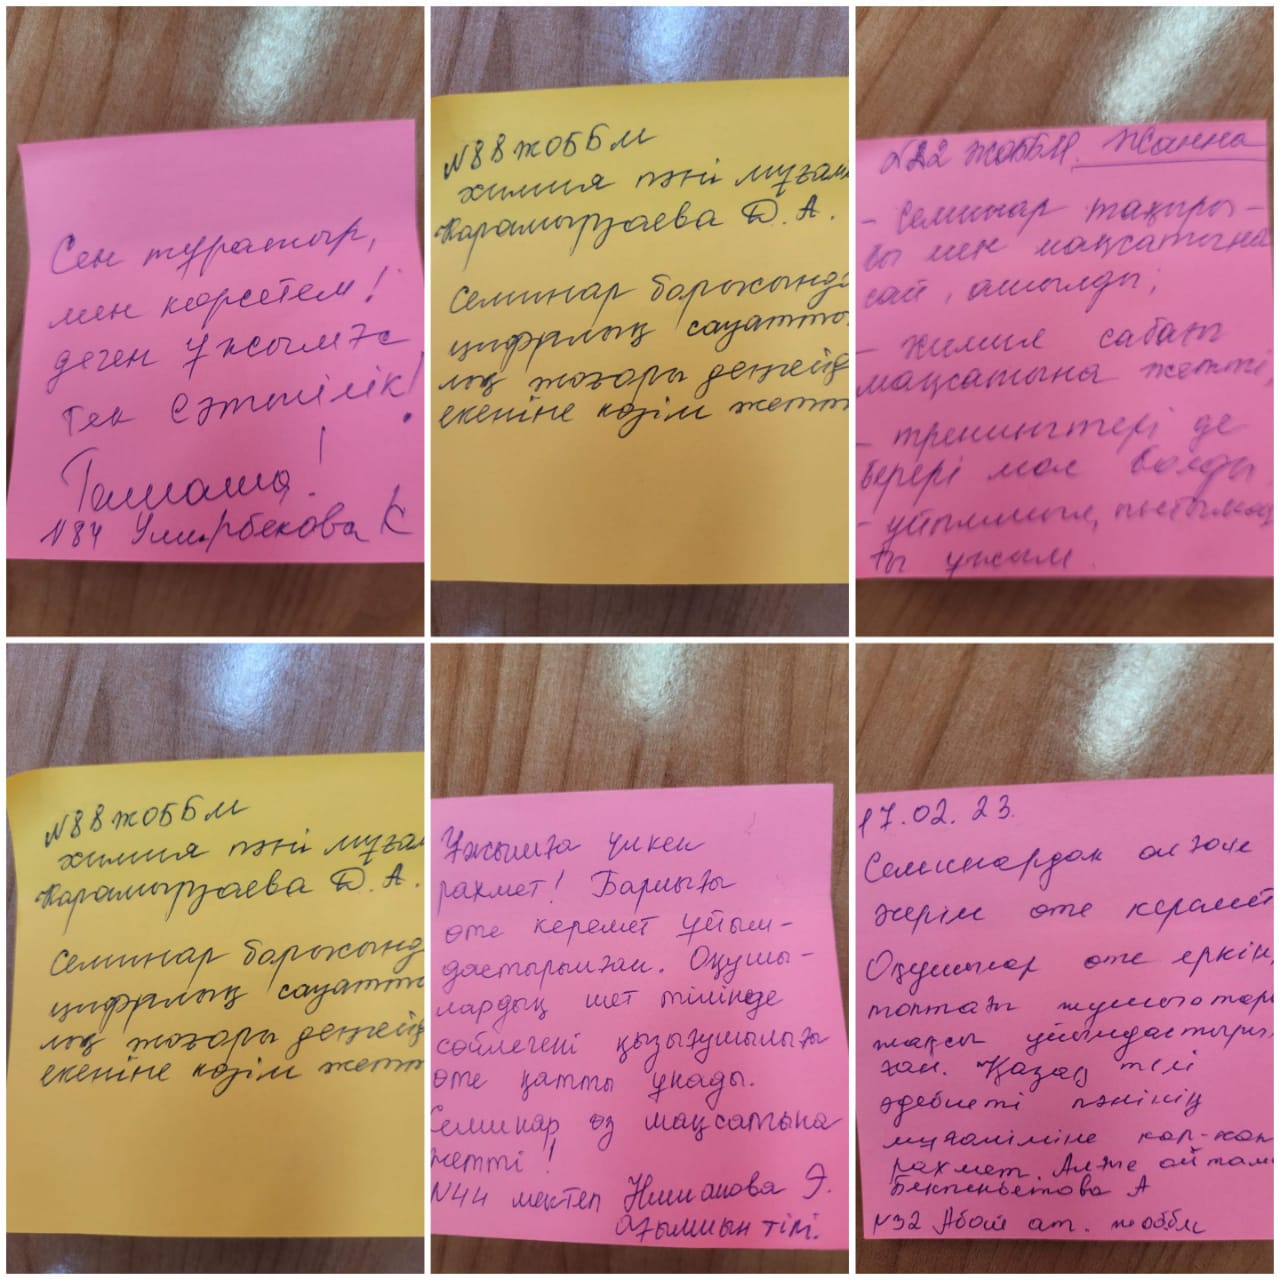 Сен тұратыр,
мен көрсетем!
деген ұжымға
тек сәттілік!
Тамаша!
N84 Умирбекова К
N88 ЖОББМ
химия пәні мұғал
Карамырзаева Д. А.
Семинар барысында
цифрлық сауатты
лық жоғары деңгейд
екеніне көзім жетт
N22 ЖОББМ. Жанна
- Семинар тақыры-
бы мен мақсатына
сай, ашылды;
- химия сабағы
мақсатына жетті,
- тренингтері де
берері мол болды
- ұйымшыл,
ты ұжым.
N88 ЖОББМ
химия пәні мұғал
Карамырзаева Д. А.
Семинар барысынд
цифрлық сауатты
лық жоғары деңгейд
екеніне көзім жетт
Ұжымға үлкен
рахмет! Барлығы
өте керемет ұйым-
дастырылған. Оқушы-
лардың шет тілінде
сөйлегені қызығушылығы
өте қатты ұнады.
Семинар өз мақсатына
жетті!
N44 мектеп Э.
ағылшын тілі.
17.02.23.
Семинардан алған
әсерім өте керемет
Оқушылар өте еркін,
топтағы жұмыстары
жақсы ұйымдастырыл
ған. Қазақ тілі
әдебиеті пәнінің
мұғаліміне көп-көп
рахмет. Алғыс айтам
А
N32 Абай ат. жоббм